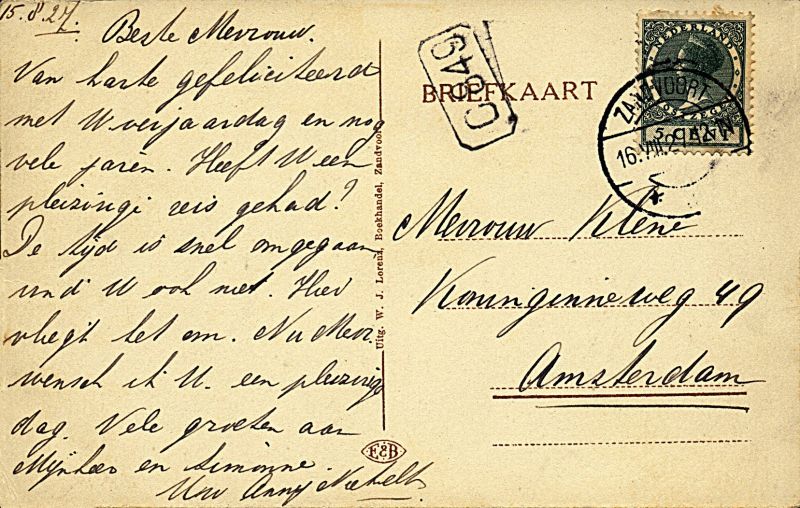 15.8.27.
Beste Mevrouw.
Van harte gefeliciteerd
met U verjaardag en nog
vele jaren. Heeft U een
pleizirige reis gehad?
De tijd is snel omgegaan
vind U ook niet. Hier
vliegt het om. Nu Mevr
wensch ik U. een pleizirige
dag. Vele groeten aan
Mijnheer en Simonne.
Uw Anny
Uitg. W. J. Lorenz, Boekhandel, Zandvoort
E&B
BRIEFKAART
NEDERLAND
POSTZEGEL
5 CENT
ZANDVOORT
16.VIII.27
Mevrouw Klene
Koninginneweg 49
Amsterdam